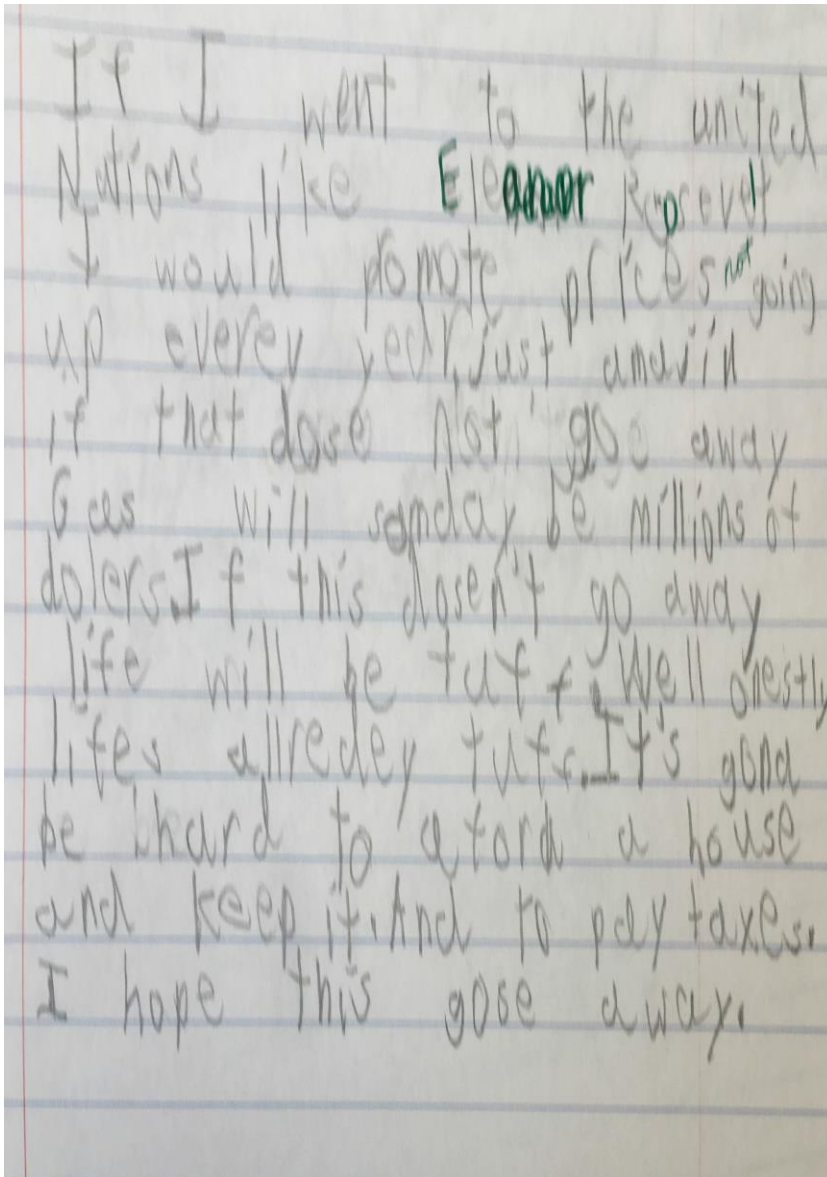 If I went to the united
Nations like Eleanor Roosevelt
I would pomote prices not going
up everey year, just amajin
if that dose not go away
Gas will somday be millions of
dolers. If this dosen't go away
life will be tuff. Well onestly
lifes allredey tuff. It's gona
be hard to aford a house
and keep it. And to pay taxes.
I hope this gose away.